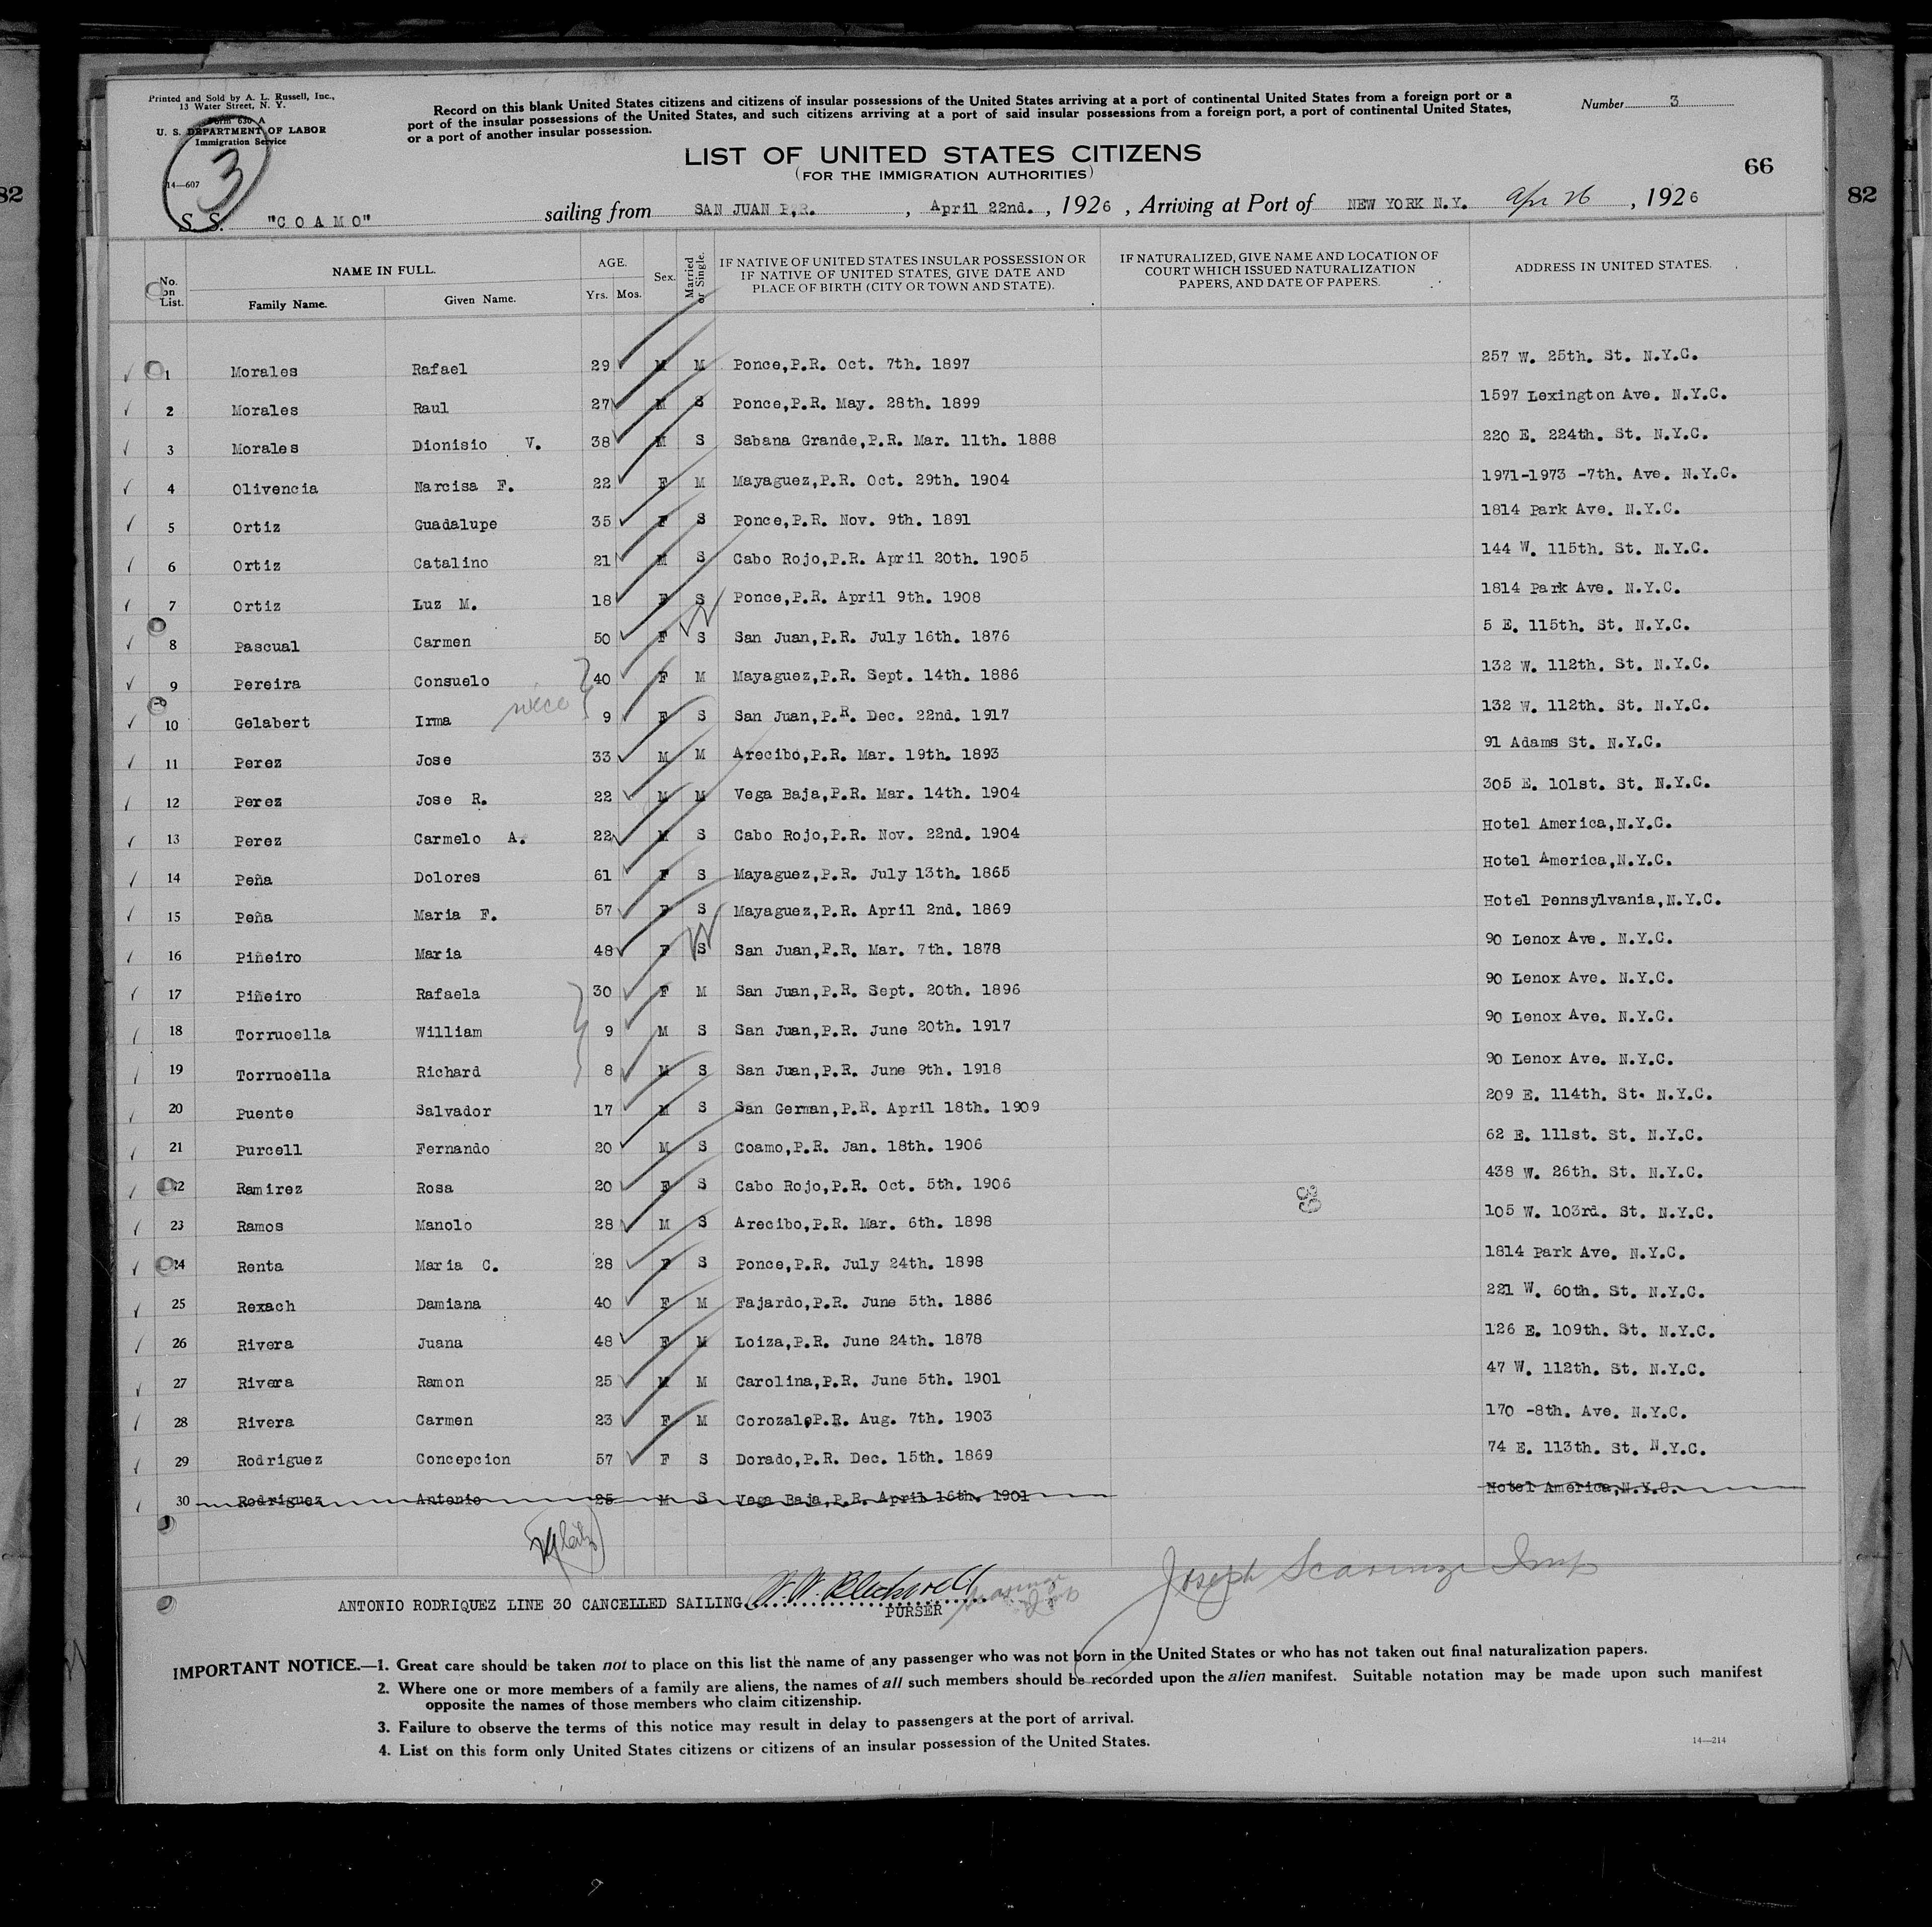 Printed and Sold by A. L. Russell, Inc.,
13 Water Street, N. Y.
Form 630 A
U. S. DEPARTMENT OF LABOR
Immigration Service
14—607
3
Record on this blank United States citizens and citizens of insular possessions of the United States arriving at a port of continental United States from a foreign port or a
port of the insular possessions of the United States, and such citizens arriving at a port of said insular possessions from a foreign port, a port of continental United States,
or a port of another insular possession.
Number 3
LIST OF UNITED STATES CITIZENS
(FOR THE IMMIGRATION AUTHORITIES)
66
82
82
S. S. "COAMO" sailing from SAN JUAN P.R. , April 22nd. , 1926 , Arriving at Port of NEW YORK N.Y. Apr 26 , 1926
No. on List. NAME IN FULL. Family Name. Given Name. AGE. Yrs. Mos. Sex. Married or Single. IF NATIVE OF UNITED STATES INSULAR POSSESSION OR IF NATIVE OF UNITED STATES, GIVE DATE AND PLACE OF BIRTH (CITY OR TOWN AND STATE). IF NATURALIZED, GIVE NAME AND LOCATION OF COURT WHICH ISSUED NATURALIZATION PAPERS, AND DATE OF PAPERS. ADDRESS IN UNITED STATES.
1 Morales Rafael 29 M M Ponce,P.R. Oct. 7th. 1897 257 W. 25th. St. N.Y.C.
2 Morales Raul 27 M S Ponce,P.R. May. 28th. 1899 1597 Lexington Ave. N.Y.C.
3 Morales Dionisio V. 38 M S Sabana Grande,P.R. Mar. 11th. 1888 220 E. 224th. St. N.Y.C.
4 Olivencia Narcisa F. 22 F M Mayaguez,P.R. Oct. 29th. 1904 1971-1973 -7th. Ave. N.Y.C.
5 Ortiz Guadalupe 35 F S Ponce,P.R. Nov. 9th. 1891 1814 Park Ave. N.Y.C.
6 Ortiz Catalino 21 M S Cabo Rojo,P.R. April 20th. 1905 144 W. 115th. St. N.Y.C.
7 Ortiz Luz M. 18 F S Ponce,P.R. April 9th. 1908 1814 Park Ave. N.Y.C.
8 Pascual Carmen 50 F S W San Juan,P.R. July 16th. 1876 5 E. 115th. St. N.Y.C.
9 Pereira Consuelo 40 F M Mayaguez,P.R. Sept. 14th. 1886 132 W. 112th. St. N.Y.C.
10 Gelabert Irma niece 9 F S San Juan,P.R. Dec. 22nd. 1917 132 W. 112th. St. N.Y.C.
11 Perez Jose 33 M M Arecibo,P.R. Mar. 19th. 1893 91 Adams St. N.Y.C.
12 Perez Jose R. 22 M M Vega Baja,P.R. Mar. 14th. 1904 305 E. 101st. St. N.Y.C.
13 Perez Carmelo A. 22 M S Cabo Rojo,P.R. Nov. 22nd. 1904 Hotel America,N.Y.C.
14 Peña Dolores 61 F S Mayaguez,P.R. July 13th. 1865 Hotel America,N.Y.C.
15 Peña Maria F. 57 F S Mayaguez,P.R. April 2nd. 1869 Hotel Pennsylvania,N.Y.C.
16 Piñeiro Maria 48 F S W San Juan,P.R. Mar. 7th. 1878 90 Lenox Ave. N.Y.C.
17 Piñeiro Rafaela 30 F M San Juan,P.R. Sept. 20th. 1896 90 Lenox Ave. N.Y.C.
18 Torruoella William 9 M S San Juan,P.R. June 20th. 1917 90 Lenox Ave. N.Y.C.
19 Torruoella Richard 8 M S San Juan,P.R. June 9th. 1918 90 Lenox Ave. N.Y.C.
20 Puente Salvador 17 M S San German,P.R. April 18th. 1909 209 E. 114th. St. N.Y.C.
21 Purcell Fernando 20 M S Coamo,P.R. Jan. 18th. 1906 62 E. 111st. St. N.Y.C.
22 Ramirez Rosa 20 F S Cabo Rojo,P.R. Oct. 5th. 1906 438 W. 26th. St. N.Y.C.
23 Ramos Manolo 28 M S Arecibo,P.R. Mar. 6th. 1898 105 W. 103rd. St. N.Y.C.
24 Renta Maria C. 28 F S Ponce,P.R. July 24th. 1898 1814 Park Ave. N.Y.C.
25 Rexach Damiana 40 F M Fajardo,P.R. June 5th. 1886 221 W. 60th. St. N.Y.C.
26 Rivera Juana 48 F M Loiza,P.R. June 24th. 1878 126 E. 109th. St. N.Y.C.
27 Rivera Ramon 25 M M Carolina,P.R. June 5th. 1901 47 W. 112th. St. N.Y.C.
28 Rivera Carmen 23 F M Corozal,P.R. Aug. 7th. 1903 170 -8th. Ave. N.Y.C.
29 Rodriguez Concepcion 57 F S Dorado,P.R. Dec. 15th. 1869 74 E. 113th. St. N.Y.C.
30 Rodriguez Antonio 25 M S Vega Baja,P.R. April 16th. 1901 Hotel America,N.Y.C.
Joseph Scaringe Insp
ANTONIO RODRIQUEZ LINE 30 CANCELLED SAILING
PURSER
IMPORTANT NOTICE.—1. Great care should be taken not to place on this list the name of any passenger who was not born in the United States or who has not taken out final naturalization papers.
2. Where one or more members of a family are aliens, the names of all such members should be recorded upon the alien manifest. Suitable notation may be made upon such manifest
opposite the names of those members who claim citizenship.
3. Failure to observe the terms of this notice may result in delay to passengers at the port of arrival.
4. List on this form only United States citizens or citizens of an insular possession of the United States.
14—214